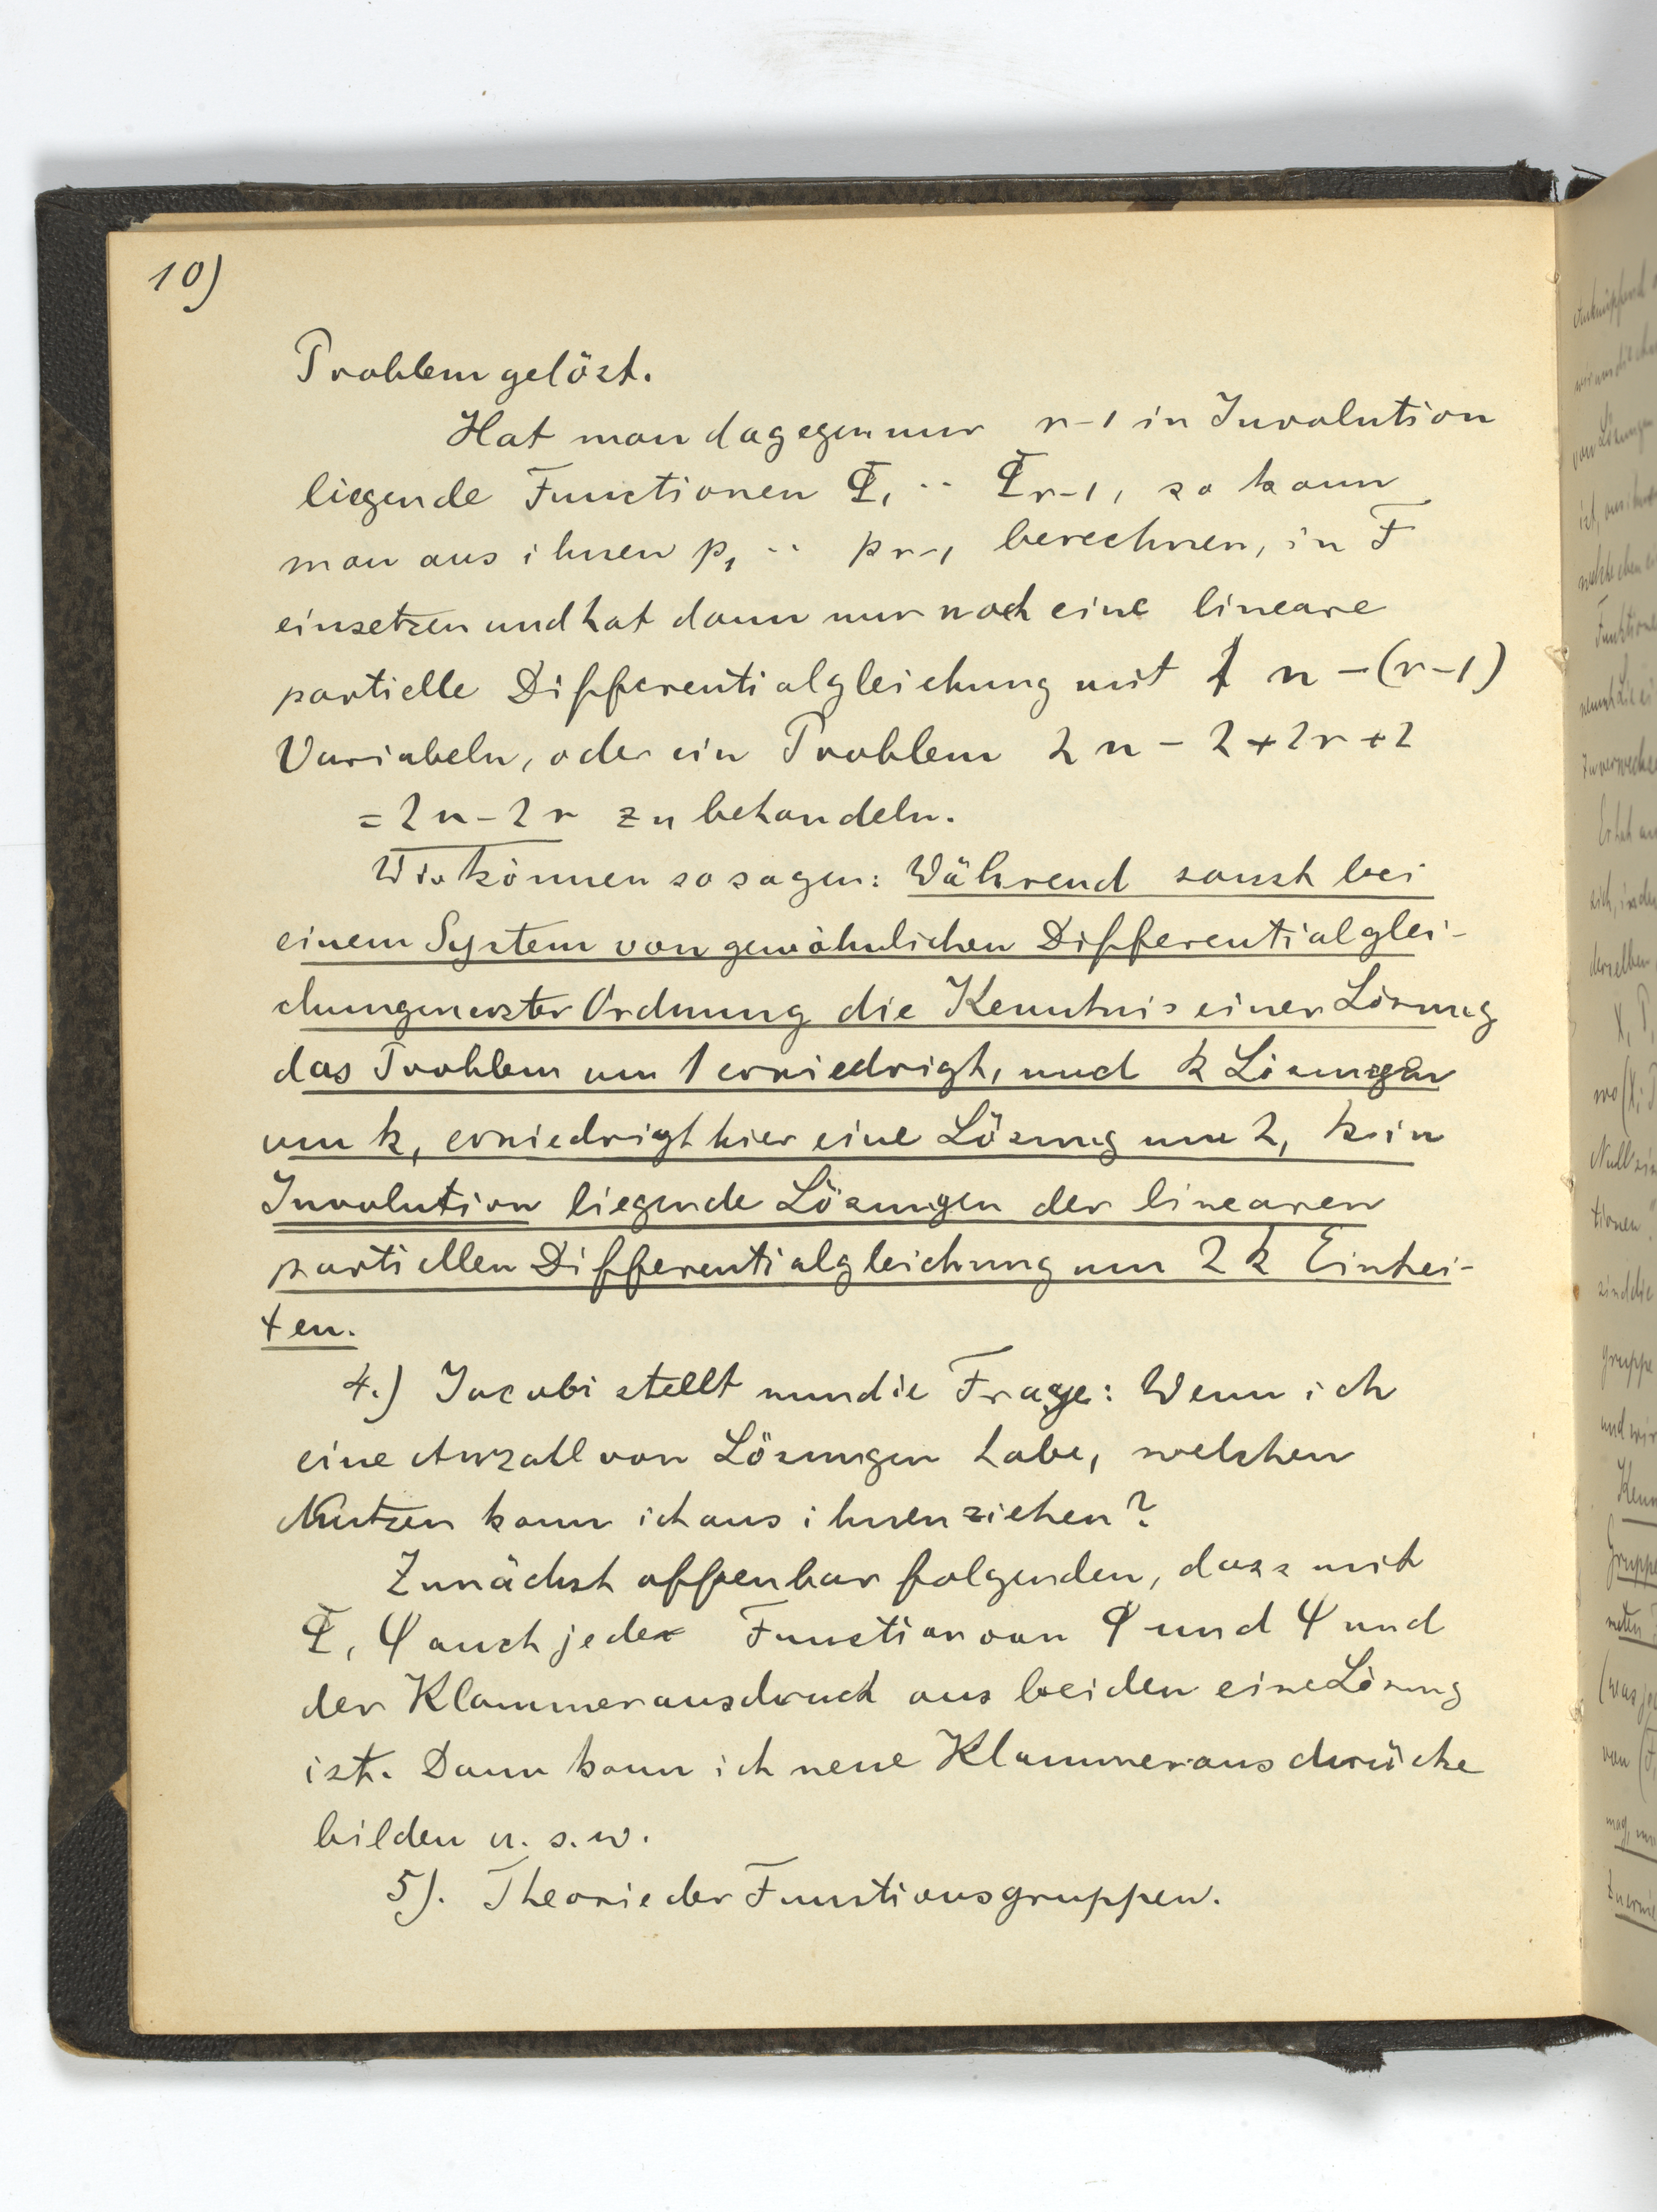 10)
Problem gelöst.
Hat man dagegen nur r-1 in Involution
liegende Functionen Φ₁ ·· Φr-1, so kann
man aus ihnen p₁ ·· pr-1 berechnen, in F
einsetzen und hat dann nur noch eine lineare
partielle Differentialgleichung mit n-(r-1)
Variabeln, oder ein Problem 2n-2+2r+2
=2n-2r zu behandeln.
Wir können so sagen: Während sonst bei
einem System von gewöhnlichen Differentialglei-
chungen erster Ordnung die Kenntnis einer Lösung
das Problem um 1 erniedrigt, und k Lösungen
um k, erniedrigt hier eine Lösung um 2, k in
Involution liegende Lösungen der linearen
partiellen Differentialgleichung um 2k Einhei-
ten.
4.) Jacobi stellt nun die Frage: Wenn ich
eine Anzahl von Lösungen habe, welchen
Nutzen kann ich aus ihnen ziehen?
Zunächst offenbar folgenden, dass mit
Φ, Ψ auch jede Function von Φ und Ψ und
der Klammerausdruck aus beiden eine Lösung
ist. Dann kann ich neue Klammerausdrücke
bilden u. s. w.
5). Theorie der Functionsgruppen.